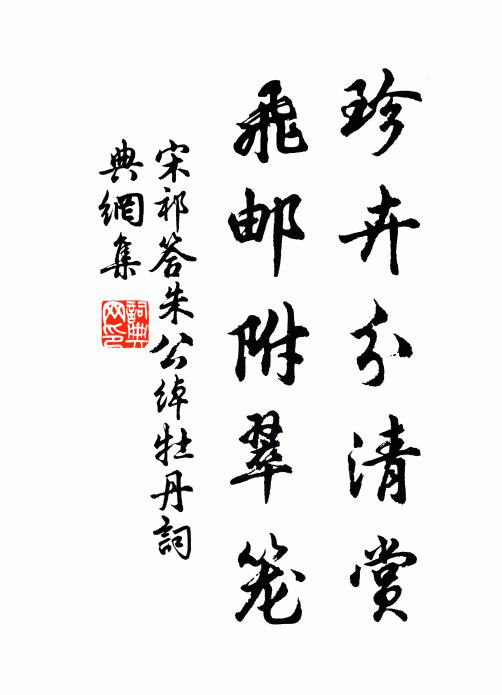 珍卉分清赏
飛邮附翠笼
宋祁答朱公绰牡丹詞
典網集
詞典網印